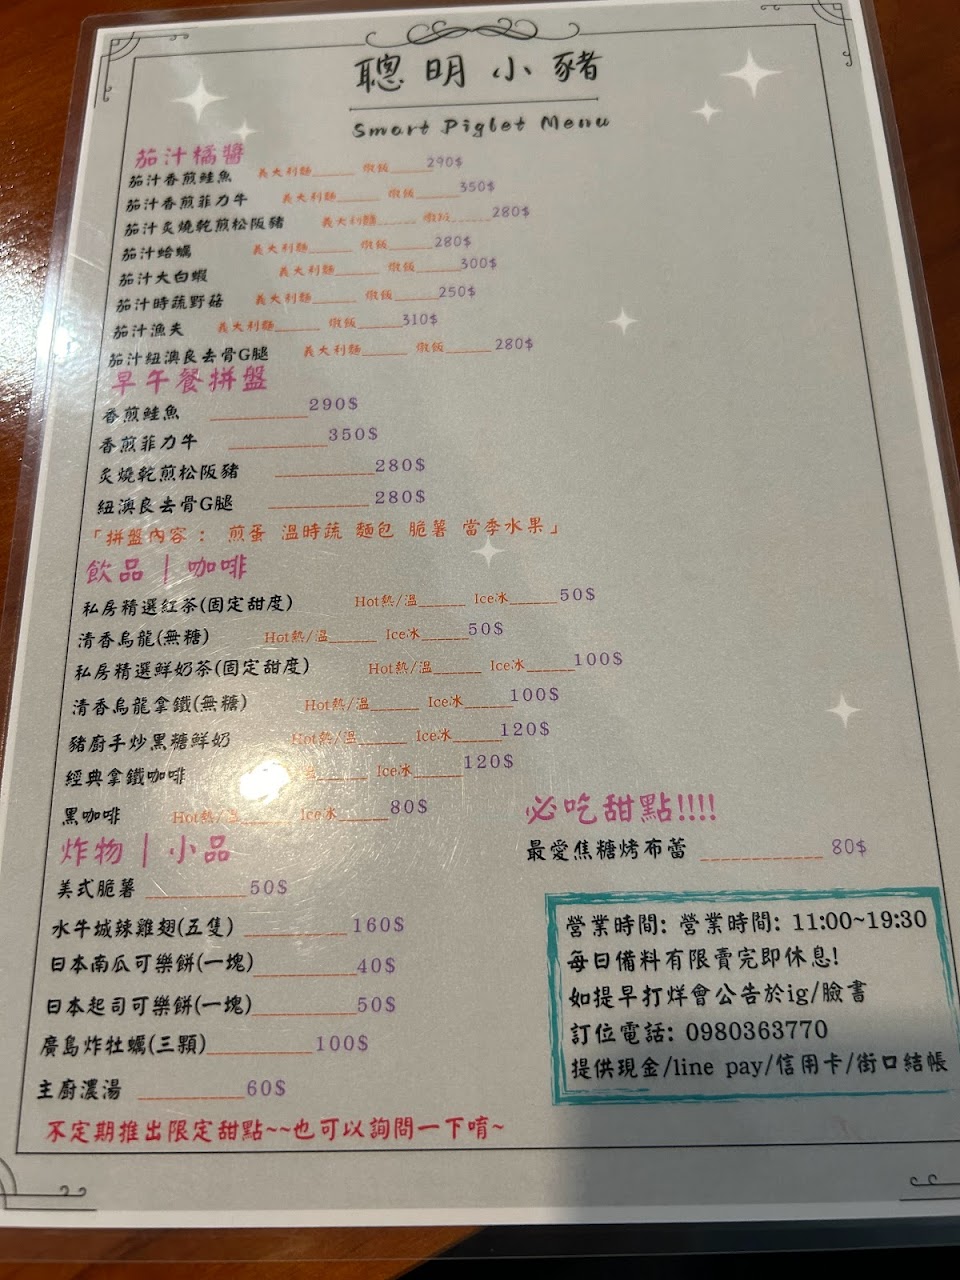 聰明小豬
Smart Piglet Menu
茄汁橘醬
茄汁香煎鮭魚 義大利麵______ 燉飯______290$
茄汁香煎菲力牛 義大利麵______ 燉飯______350$
茄汁炙燒乾煎松阪豬 義大利麵______ 燉飯______280$
茄汁蛤蠣 義大利麵______ 燉飯______280$
茄汁大白蝦 義大利麵______ 燉飯______300$
茄汁時蔬野菇 義大利麵______ 燉飯______250$
茄汁漁夫 義大利麵______ 燉飯______310$
茄汁紐澳良去骨G腿 義大利麵______ 燉飯______280$
早午餐拼盤
香煎鮭魚 __________290$
香煎菲力牛 __________350$
炙燒乾煎松阪豬 __________280$
紐澳良去骨G腿 __________280$
「拼盤內容： 煎蛋 溫時蔬 麵包 脆薯 當季水果」
飲品｜咖啡
私房精選紅茶(固定甜度) Hot熱/溫______ Ice冰______50$
清香烏龍(無糖) Hot熱/溫______ Ice冰______50$
私房精選鮮奶茶(固定甜度) Hot熱/溫______ Ice冰______100$
清香烏龍拿鐵(無糖) Hot熱/溫______ Ice冰______100$
豬廚手炒黑糖鮮奶 Hot熱/溫______ Ice冰______120$
經典拿鐵咖啡 溫______ Ice冰______120$
黑咖啡 Hot熱/溫______ Ice冰______80$
炸物｜小品
美式脆薯 __________50$
水牛城辣雞翅(五隻) __________160$
日本南瓜可樂餅(一塊)__________40$
日本起司可樂餅(一塊)__________50$
廣島炸牡蠣(三顆)__________100$
主廚濃湯 __________60$
不定期推出限定甜點~~也可以詢問一下唷~
必吃甜點!!!!
最愛焦糖烤布蕾 ____________ 80$
營業時間: 營業時間: 11:00~19:30
每日備料有限賣完即休息!
如提早打烊會公告於ig/臉書
訂位電話: 0980363770
提供現金/line pay/信用卡/街口結帳